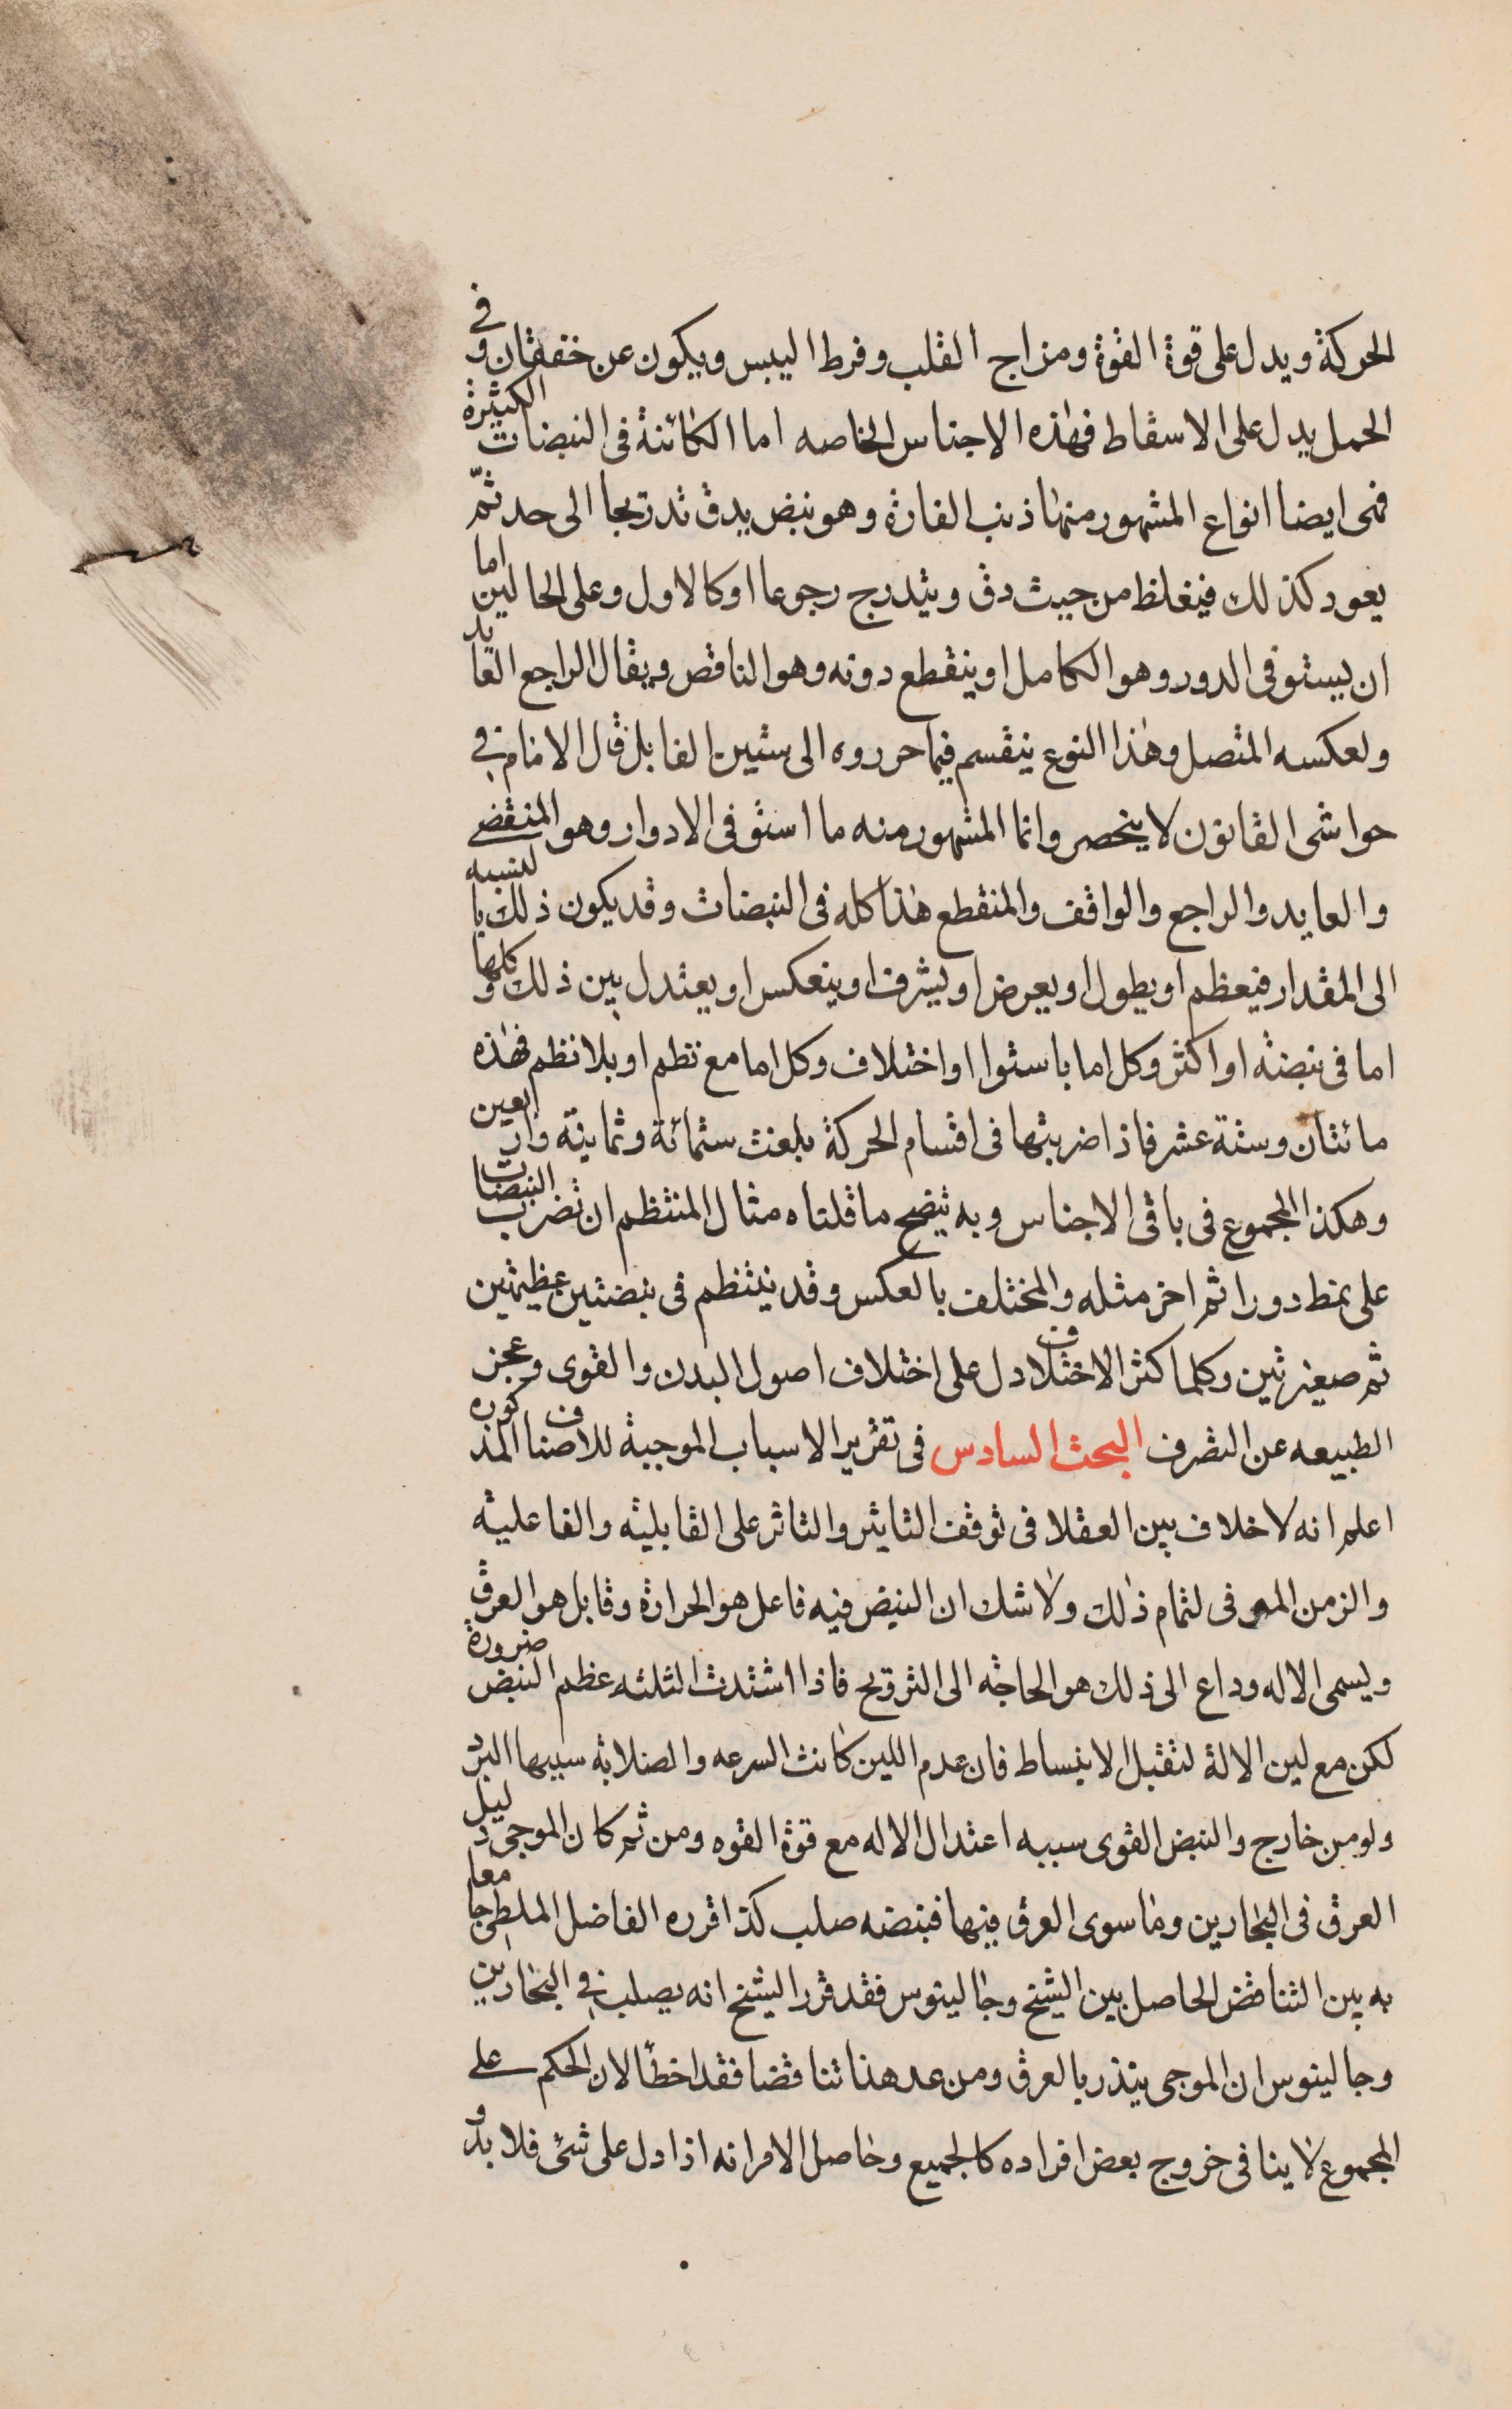 الحركة ويدل على قوة القوة ومزاج القلب وفرط اليبس ويكون عن خفقان وفى
الحمل يدل على الاسقاط فهذه الاجناس الخاصه اما الكائنة فى النبضات الكثيرة
فهى ايضا انواع المشهور منها ذنب الفارة وهو نبض يدق تدريجا الى حد ثم
يعود كذلك فيغلظ من حيث دق ويتدرج رجوعا او كالاول وعلى الحالين اما
ان يستوفى الدور وهو الكامل او ينقطع دونه وهو الناقص ويقال الراجع العايد
ولعكسه المتصل وهذا النوع ينقسم فيما حرروه الى ستين الفا بل قال الامام فى
حواشى القانون لا ينحصر وانما المشهور منه ما استوفى الادوار وهو المنقضى
والعايد والراجع والواقف والمنقطع هذا كله فى النبضات وقد يكون ذلك بالنسبه
الى المقدار فيعظم او يطول او يعرض او يشرف او ينعكس او يعتدل بين ذلك وكلها
اما فى نبضته او اكثر وكل اما باستوا او اختلاف وكل اما مع نظم او بلا نظم فهذه
مائتان وستة عشر فاذا ضربتها فى اقسام الحركة بلغت ستمائة وثمانية واربعين
وهكذا المجموع فى باقى الاجناس وبه يتضح ما قلناه مثال المنتظم ان تضرب النبضات
على نمط دورا ثم اخر مثله والمختلف بالعكس وقد ينتظم فى نبضتين عظيمتين
ثم صغيرتين وكلما كثر الاختلاف دل على اختلاف اصول البدن والقوى وعجز
الطبيعه عن التصرف البحث السادس فى تقرير الاسباب الموجبة للاصناف المذكوره
اعلم انه لا خلاف بين العقلا فى توقف التاثير والتاثر على القابليته والفاعليته
والزمن الموفى لتمام ذلك ولا شك ان النبض فيه فاعل هو الحرارة وقابل هو العرق
ويسمى الاله وداع الى ذلك هو الحاجه الى الترويح فاذا اشتدت الثلثه عظم النبض ضرورة
لكن مع لين الالة لتقبل الانبساط فان عدم اللين كانت السرعه والصلابه سببها البرد
ولو من خارج والنبض القوى سببه اعتدال الاله مع قوة القوه ومن ثم كان الموجى دليل
العرق فى البخارين وما سوى العرق فيها فنبضه صلب كذا قرره الفاضل الملطى جامعا
به بين التناقض الحاصل بين الشيخ وجالينوس فقد قرر الشيخ انه يصلب فى البخارين
وجالينوس ان الموجى ينذر بالعرق ومن عد هذا تناقضا فقد اخطأ لان الحكم على
المجموع لا ينافى خروج بعض افراده كالجميع وحاصل الامر انه اذا دل على شئ فلا بد و